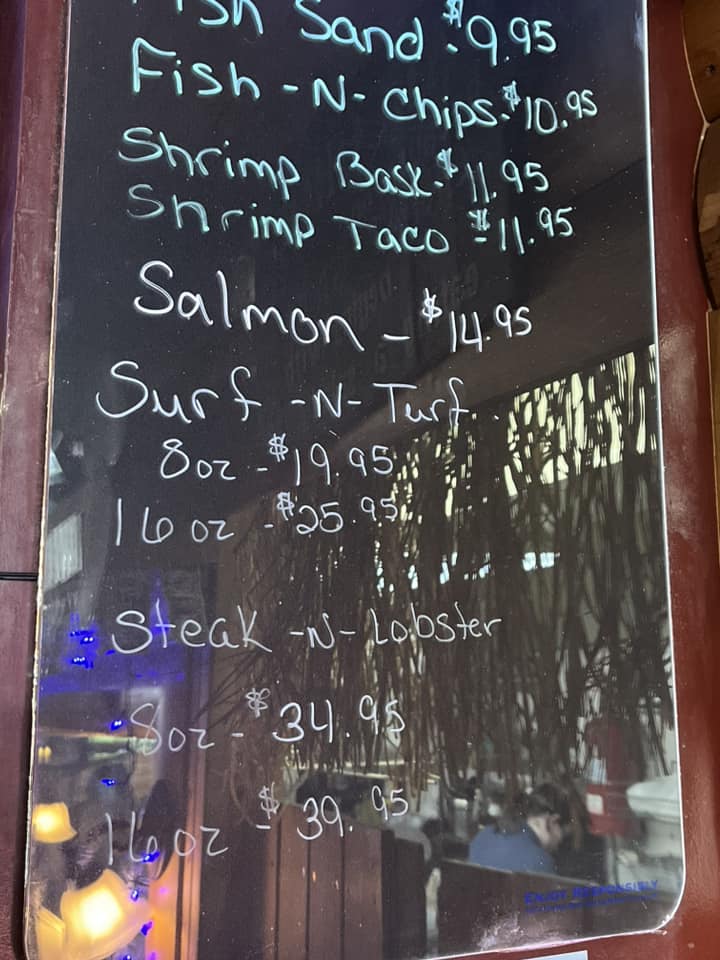 Sand - $9.95
Fish -N- Chips - $10.95
Shrimp Bask. - $11.95
Shrimp Taco - $11.95
Salmon - $14.95
Surf -N- Turf
8oz - $19.95
16oz - $25.95
Steak -N- Lobster
8oz - $34.95
16oz - $39.95
ENJOY RESPONSIBLY